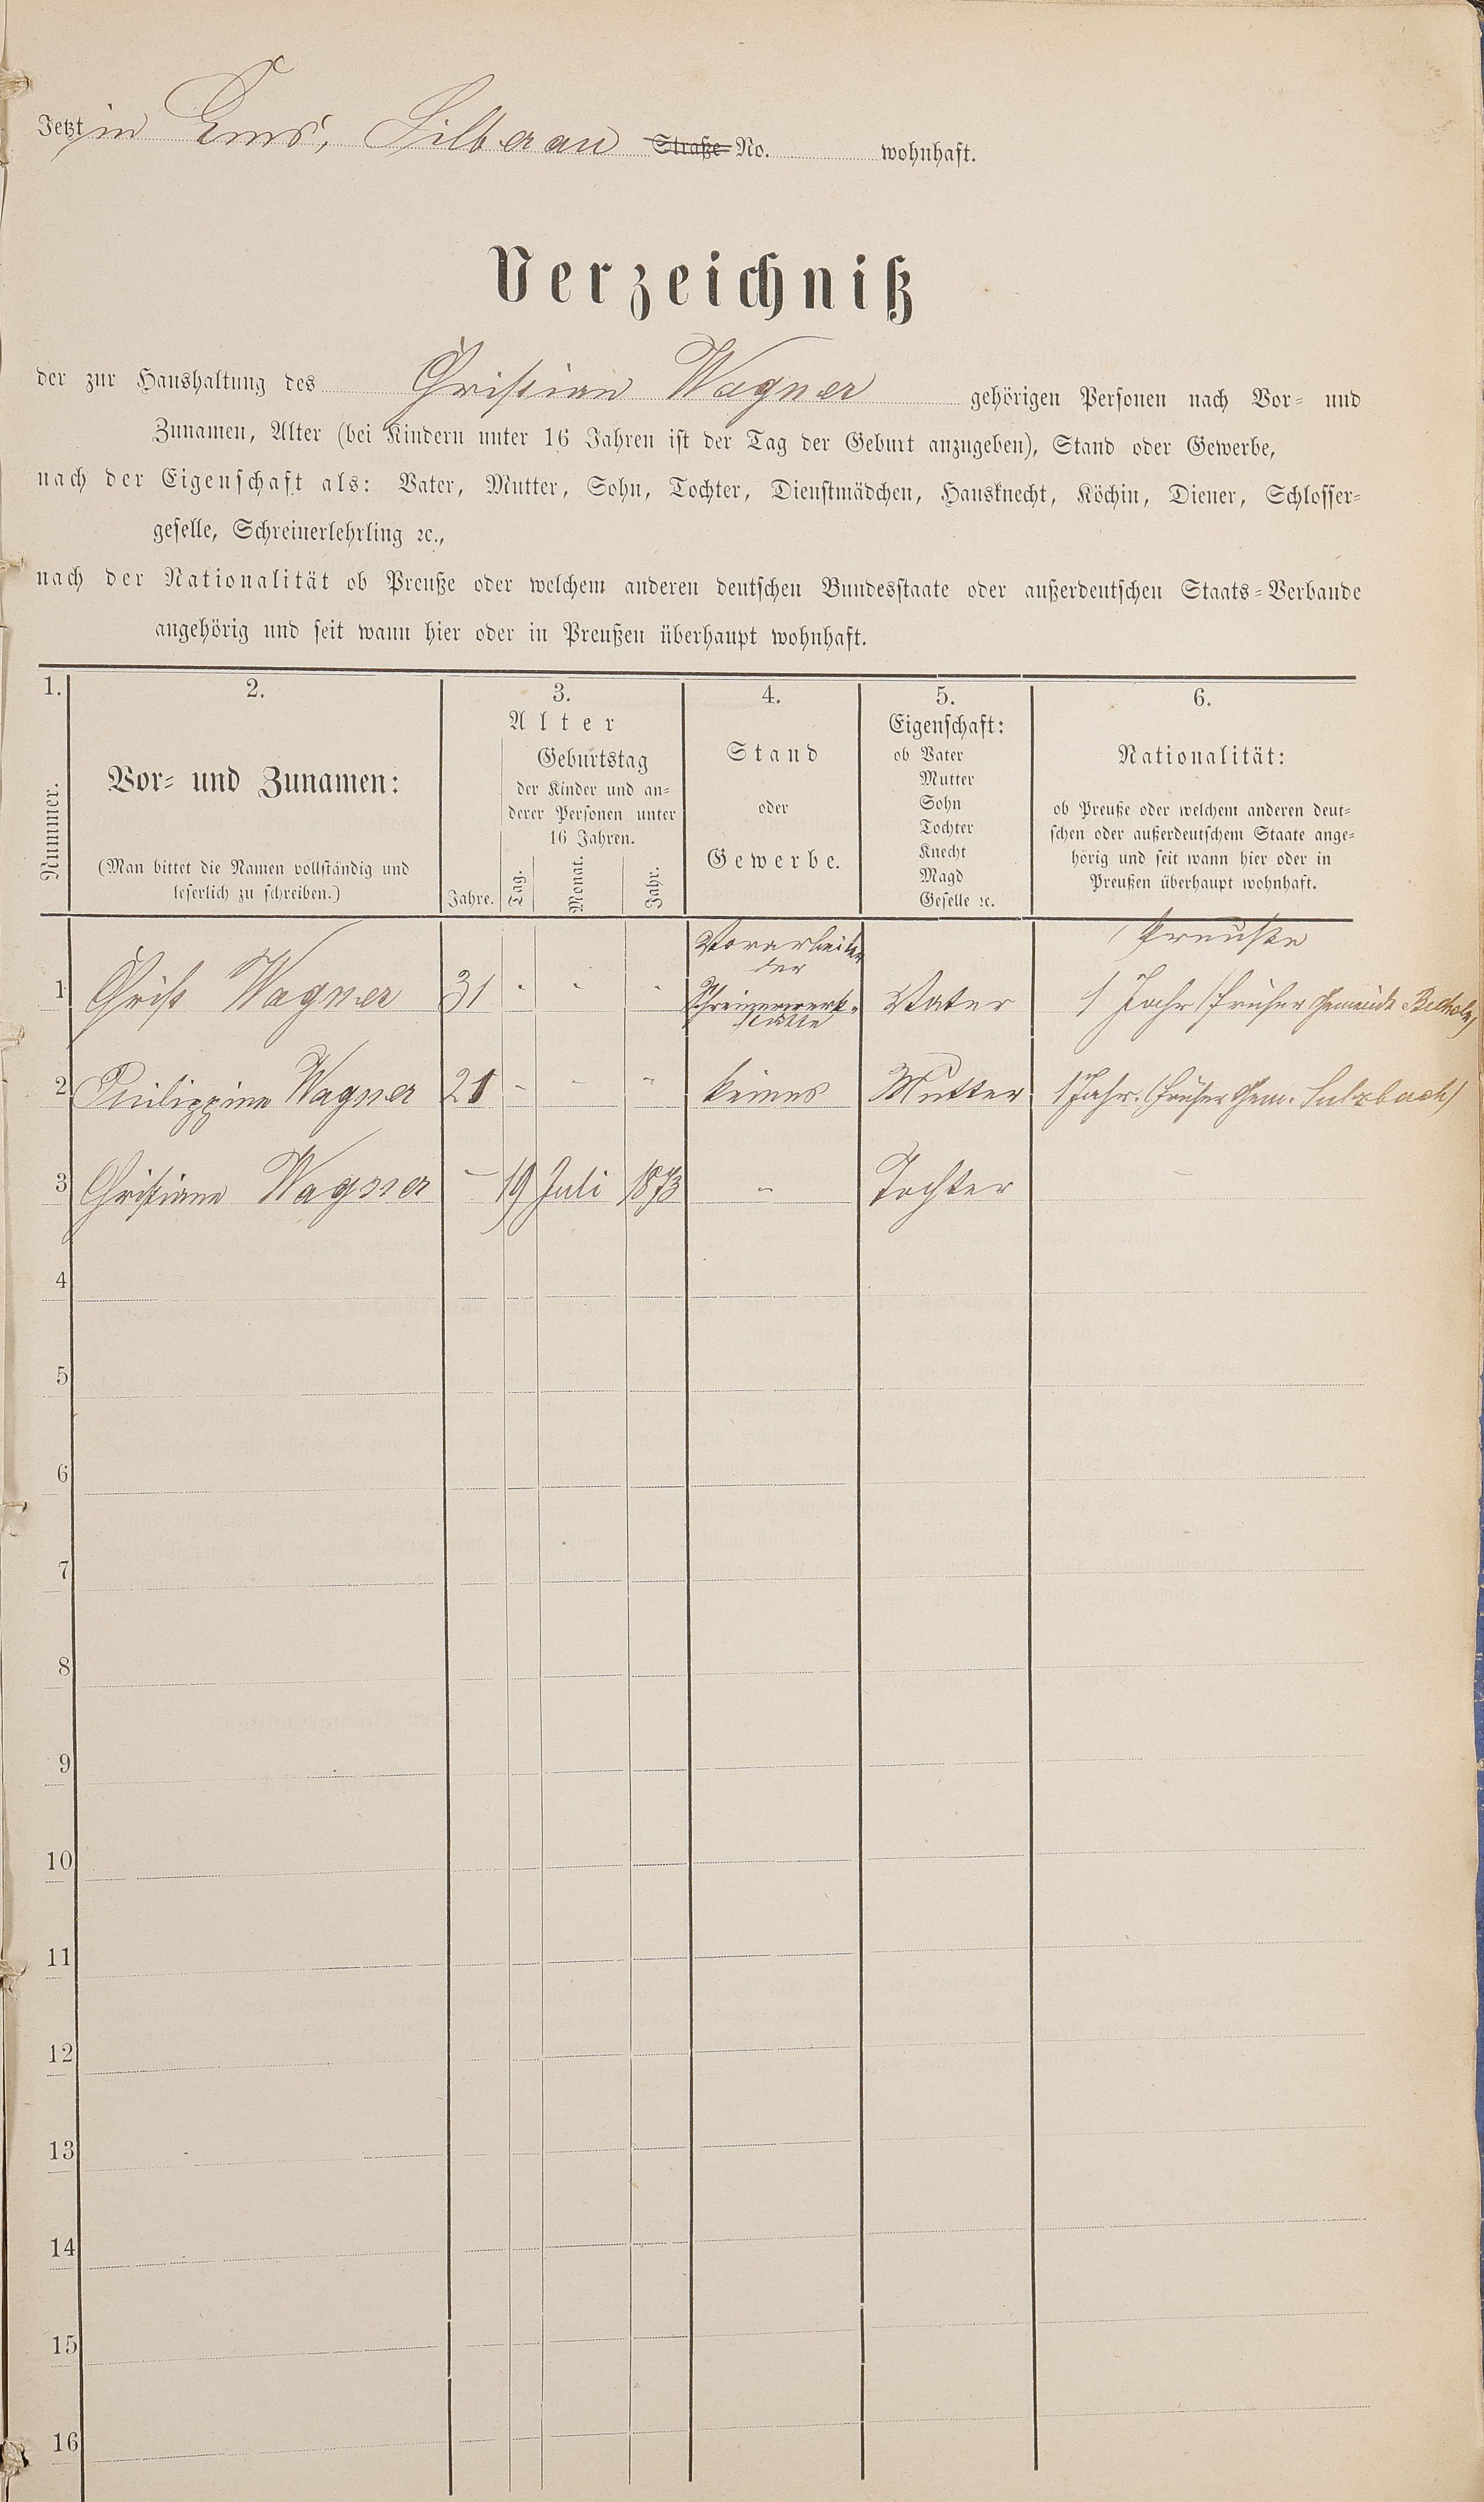 Jetzt in Ems, Silberau Straße No. wohnhaft.
Verzeichniß
der zur Haushaltung des Christian Wagner gehörigen Personen nach Vor- und
Zunamen, Alter (bei Kindern unter 16 Jahren ist der Tag der Geburt anzugeben), Stand oder Gewerbe,
nach der Eigenschaft als: Vater, Mutter, Sohn, Tochter, Dienstmädchen, Hausknecht, Köchin, Diener, Schlosser-
geselle, Schreinerlehrling ꝛc.,
nach der Nationalität ob Preuße oder welchem anderen deutschen Bundesstaate oder außerdeutschen Staats-Verbande
angehörig und seit wann hier oder in Preußen überhaupt wohnhaft.
1. 2. 3. 4. 5. 6.
Nummer.
Vor- und Zunamen:
(Man bittet die Namen vollständig und
leserlich zu schreiben.)
Alter
Jahre.
Geburtstag
der Kinder und an-
derer Personen unter
16 Jahren.
Tag. Monat. Jahr.
Stand
oder
Gewerbe.
Eigenschaft:
ob Vater
Mutter
Sohn
Tochter
Knecht
Magd
Geselle ꝛc.
Nationalität:
ob Preuße oder welchem anderen deut-
schen oder außerdeutschem Staate ange-
hörig und seit wann hier oder in
Preußen überhaupt wohnhaft.
Vorarbeiter Preuße
der
1 Christ Wagner 31 - - - Schreinerwerk- Vater 1 Jahr (früher Gemeinde
stätte
2 Philippine Wagner 21 - - - keines Mutter 1 Jahr. (früher Gem. Sulzbach)
3 Christiane Wagner - 19 Juli 1873 - Tochter -
4
5
6
7
8
9
10
11
12
13
14
15
16